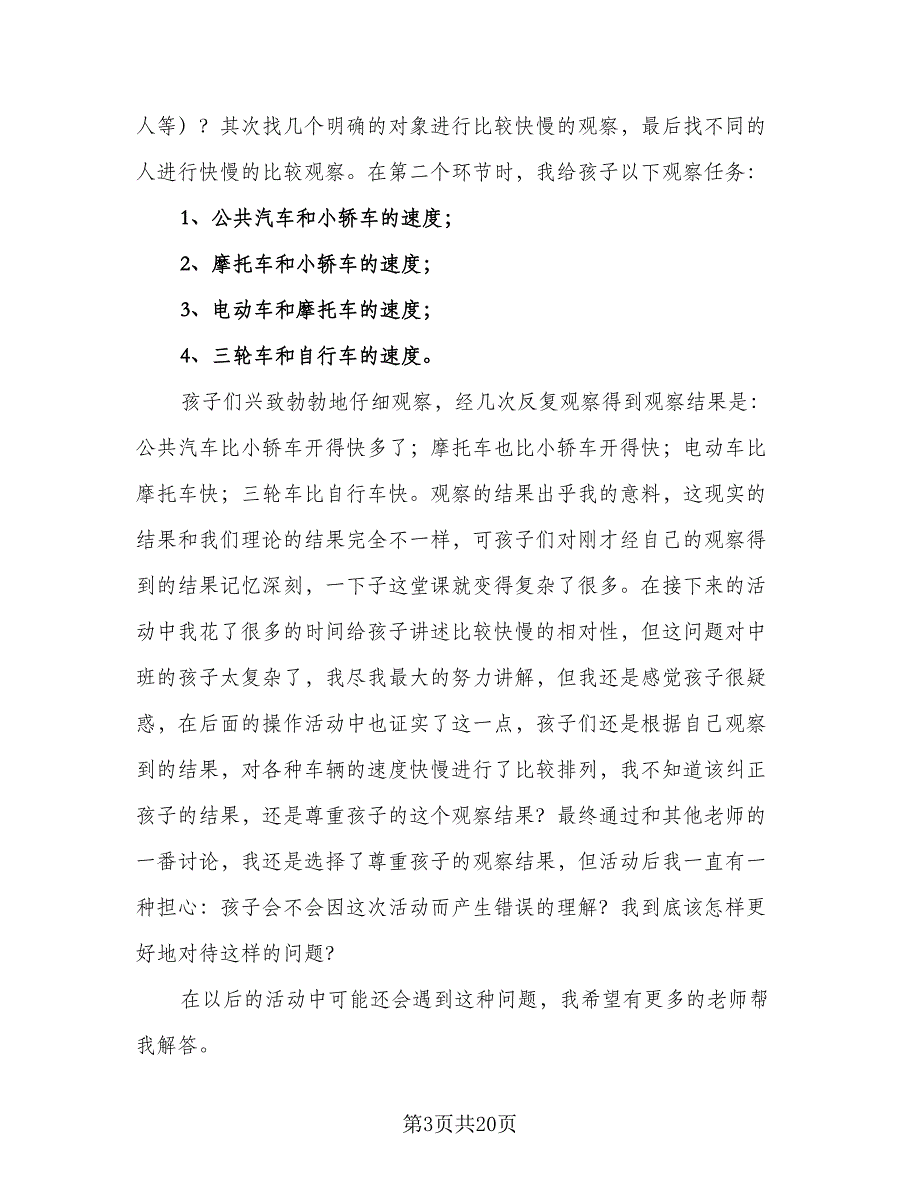 人等）？其次找几个明确的对象进行比较快慢的观察，最后找不同的
人进行快慢的比较观察。在第二个环节时，我给孩子以下观察任务：
1、公共汽车和小轿车的速度；
2、摩托车和小轿车的速度；
3、电动车和摩托车的速度；
4、三轮车和自行车的速度。
孩子们兴致勃勃地仔细观察，经几次反复观察得到观察结果是：
公共汽车比小轿车开得快多了；摩托车也比小轿车开得快；电动车比
摩托车快；三轮车比自行车快。观察的结果出乎我的意料，这现实的
结果和我们理论的结果完全不一样，可孩子们对刚才经自己的观察得
到的结果记忆深刻，一下子这堂课就变得复杂了很多。在接下来的活
动中我花了很多的时间给孩子讲述比较快慢的相对性，但这问题对中
班的孩子太复杂了，我尽我最大的努力讲解，但我还是感觉孩子很疑
惑，在后面的操作活动中也证实了这一点，孩子们还是根据自己观察
到的结果，对各种车辆的速度快慢进行了比较排列，我不知道该纠正
孩子的结果，还是尊重孩子的这个观察结果？最终通过和其他老师的
一番讨论，我还是选择了尊重孩子的观察结果，但活动后我一直有一
种担心：孩子会不会因这次活动而产生错误的理解？我到底该怎样更
好地对待这样的问题？
在以后的活动中可能还会遇到这种问题，我希望有更多的老师帮
我解答。
第3页共20页